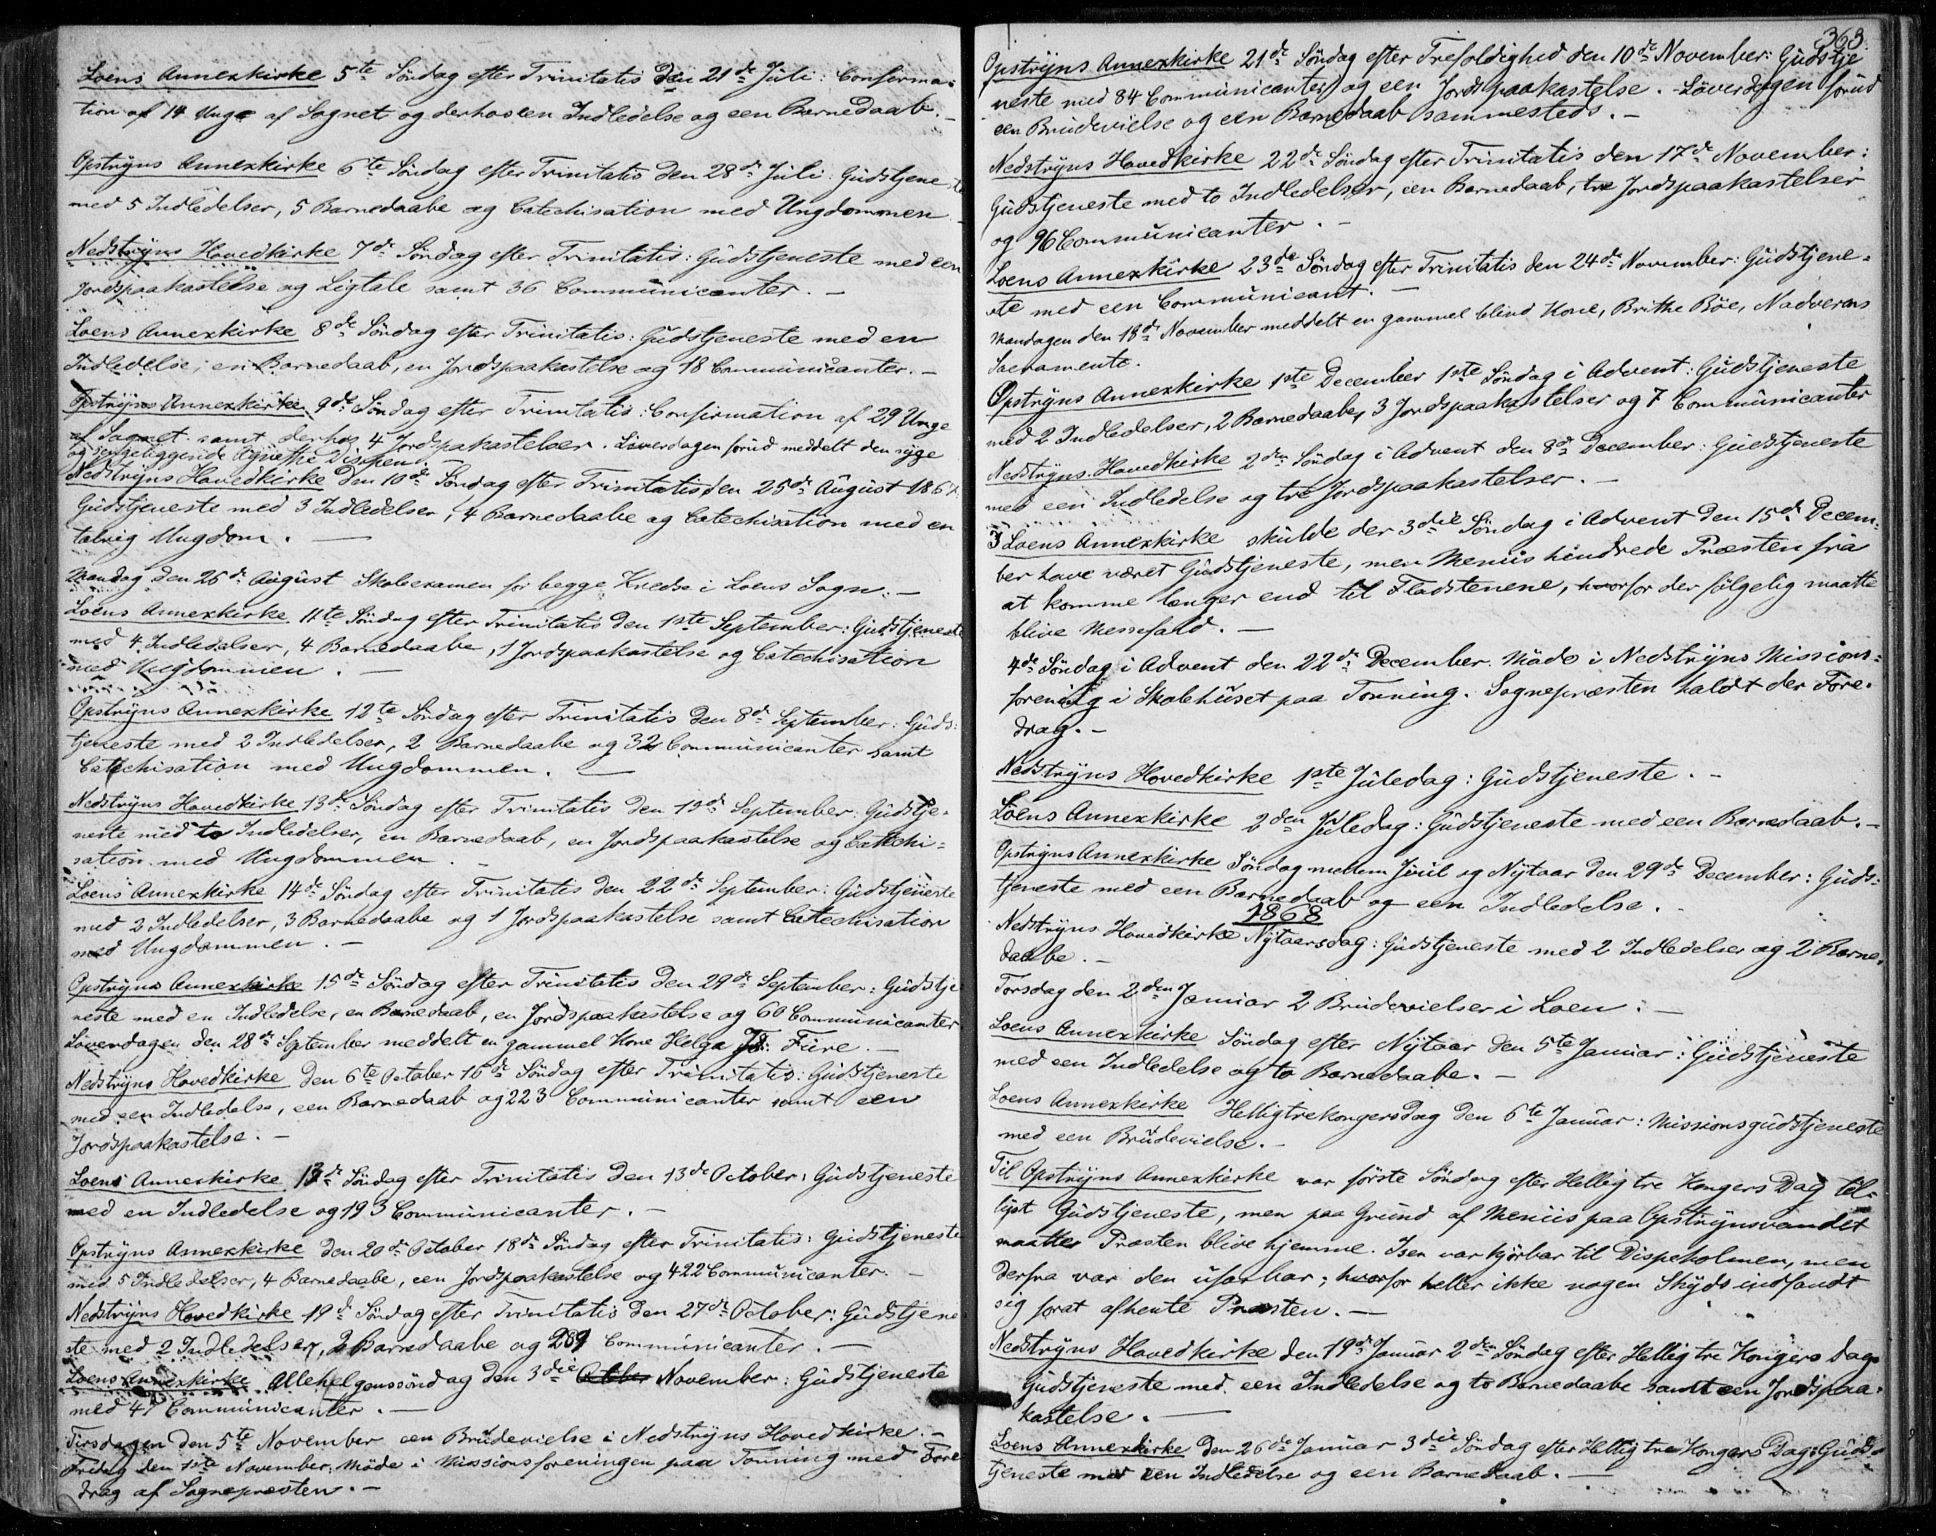 Loens Annexkirke 5te Søndag efter Trinitatis den 21de Juli: Confirma-
tion af 14 Unge af Sognet og derhos en Indledelse og een Barnedaab. –
Opstryns Annexkirke 6te Søndag efter Trinitatis den 28de Juli: Gudstjeneste
med 5 Indledelser, 5 Barnedaabe og Catechisation med Ungdommen. –
Nedstryns Hovedkirke 7de Søndag efter Trinitatis: Gudstjeneste med een
Jordspaakastelse og Ligtale samt 36 Communicanter. –
Loens Annexkirke 8de Søndag efter Trinitatis: Gudstjeneste med en
Indledelse, en Barnedaab, en Jordspaakastelse og 18 Communicanter. –
Opstryns Annexkirke 9de Søndag efter Trinitatis: Confirmation af 29 Unge
af Sognet samt derhos 4 Jordpaakastelser. Løverdagen forud meddelt den syge
og sengeliggende Agnethe Dispen.
Nedstryns Hovedkirke den 10de Søndag efter Trinitatis den 25de August 1867
Gudstjeneste med 3 Indledelser, 4 Barnedaabe og Catechisation med en
talrig Ungdom. –
Mandag den 26de August Skoleexamen for begge Kredse i Loens Sogn. –
Loens Annexkirke 11te Søndag efter Trinitatis den 1ste September: Gudstjeneste
med 4 Indledelser, 4 Barnedaabe, 1 Jordspaakastelse og Catechisation
med Ungdommen. –
Opstryns Annexkirke 12te Søndag efter Trinitatis den 8de September: Guds-
tjeneste med 2 Indledelser, 2 Barnedaabe og 32 Communicanter samt
Catechisation med Ungdommen. –
Nedstryns Hovedkirke 13de Søndag efter Trinitatis den 15de September: Gudstje-
neste med to Indledelser, en Barnedaab, en Jordspaakastelse og Catechi-
sation med Ungdommen. –
Loens Annexkirke 14de Søndag efter Trinitatis den 22de September: Gudstjeneste
med 2 Indledelser, 3 Barnedaabe og 1 Jordspaakastelse samt Catechisation
med Ungdommen. –
Opstryns Annexkirke 15de Søndag efter Trinitatis den 29de September: Gudstje
neste med en Indledelse, en Barnedaab, en Jordspaakastelse og 60 Communicanter
Løverdagen den 28de September meddelt en gammel Kone Helga Fure. –
Nedstryns Hovedkirke den 6te October 16de Søndag efter Trinitatis: Gudstjeneste
med een Indledelse, een Barnedaab og 223 Communicanter samt een
Jordspaakastelse. –
Loens Annexkirke 17de Søndag efter Trinitatis den 13de October: Gudstjeneste
med en Indledelse og 193 Communicanter. –
Opstryns Annexkirke den 20de October 18de Søndag efter Trinitatis: Gudstjeneste
med 5 Indledelser, 4 Barnedaabe, een Jordspaakastelse og 422 Communicanter. –
Nedstryns Hovedkirke 19d Søndag efter Trinitatis den 27de October: Gudstjene
ste med 2 Indledelser, 2 Barnedaabe og 289 Communicanter. –
Loens Annexkirke Allehelgenssøndag den 3die November: Gudstjeneste
med 47 Communicanter. –
Tirsdagen den 5te November een Brudevielse i Nedstryns Hovedkirke. –
Fredag den 1ste November: Møde i Missionsforeningen paa Tonning med Fore
drag af Sognepræsten. –
368.
Opstryns Annexkirke 21de Søndag efter Trefoldighed den 10de November: Gudstje
neste med 84 Communicanter og een Jordspaakastelse. – Løverdagen forud
een Brudevielse og een Barnedaab sammesteds. –
Nedstryns Hovedkirke 22de Søndag efter Trinitatis den 17de November:
Gudstjeneste med to Indledelser, een Barnedaab, tre Jordspaakastelser
og 96 Communicanter. –
Loens Annexkirke 23de Søndag efter Trinitatis den 24de November: Gudstjene-
ste med een Communicant. –
Mandagen den 18de November meddelt en gammel blind Kone, Brithe Bøe, Nadverens
Sacramente.
Opstryns Annexkirke 1ste December 1ste Søndag i Advent: Gudstjeneste
med 2 Indledelser, 2 Barnedaabe, 3 Jordspaakastelser og 7 Communicanter
Nedstryns Hovedkirke 2den Søndag i Advent den 8de December: Gudstjeneste
med een Indledelse og tre Jordspaakastelser. –
I Loens Annexkirke skulde der 3die Søndag i Advent den 15de Decem-
ber have været Gudstjeneste, men Meniis hindrede Præsten fra
at komme længer end til Fladstenene, hvorfor der følgelig maatte
blive Messefald. –
4de Søndag i Advent den 22de December Møde i Nedstryns Missions-
forening i Skolehuset paa Tonning. Sognepræsten holdt der Fore-
drag. –
Nedstryns Hovedkirke 1ste Juledag: Gudstjeneste. –
Loens Annexkirke 2den Juledag: Gudstjeneste med een Barnedaab. –
Opstryns Annexkirke Søndag mellem Juul og Nytaar den 29de December: Guds-
tjeneste med een Barnedaab og een Indledelse. –
1868
Nedstryns Hovedkirke Nytaarsdag: Gudstjeneste med 2 Indledelser og 2 Barne-
daabe. –
Torsdag den 2den Januar 2 Brudevielser i Loen. –
Loens Annexkirke Søndag efter Nytaar den 5te Januar: Gudstjeneste
med een Indledelse og to Barnedaabe. –
Loens Annexkirke Helligtrekongersdag den 6te Januar: Missionsgudstjeneste
med een Brudevielse. –
Til Opstryns Annexkirke var første Søndag efter Hellig tre Kongers Dag til-
lyst Gudstjeneste, men paa Grund af Meniis paa Opstrynsvandet
maatte Præsten blive hjemme. Isen var kjørbar til Dispeholmen, men
derfra var den ufarbar; hvorfor heller ikke nogen Skyds indfandt
sig forat afhente Præsten. –
Nedstryns Hovedkirke den 19de Januar 2den Søndag efter Hellig tre Kongers Dag:
Gudstjeneste med een Indledelse og to Barnedaabe samt een Jordspaa-
kastelse. –
Loens Annexkirke den 26de Januar 3die Søndag efter Hellig tre Kongers Dag: Guds-
tjeneste med een Indledelse og een Barnedaab. –